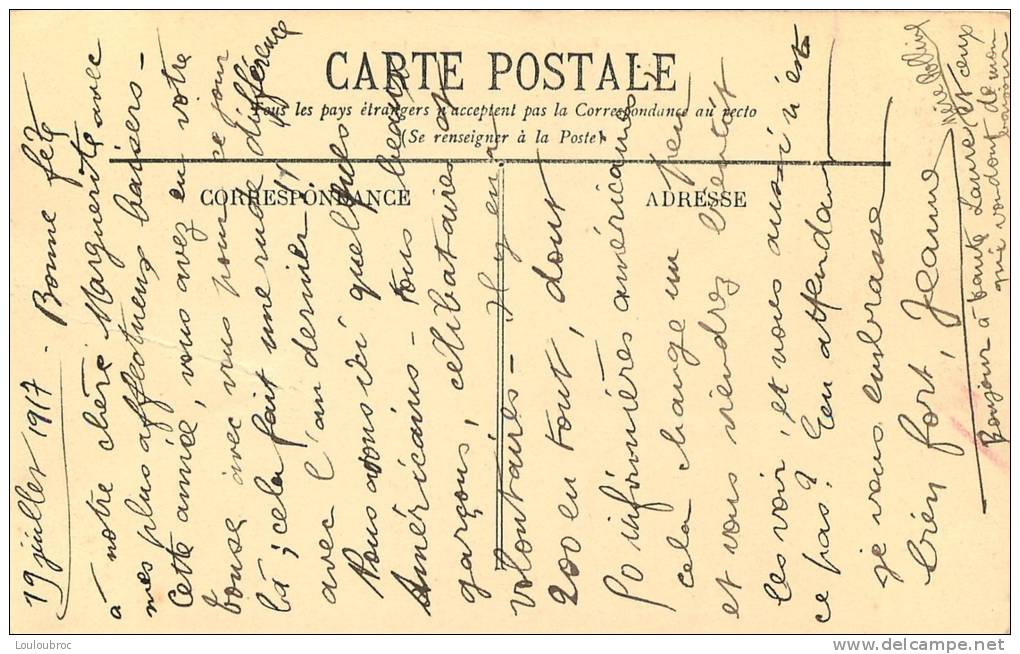 CARTE POSTALE
Tous les pays étrangers n'acceptent pas la Correspondance au recto
(Se renseigner à la Poste)
CORRESPONDANCE
ADRESSE
19 juillet 1917. Bonne fête
à notre chère Marguerite avec
mes plus affectueux baisers -
Cette année, vous avez en votre
avec vous pour ce jour
là ; cela fait une rude différence
avec l'an dernier !!
Nous avons ici quelques
Américains - tous beaux
garçons, célibataires et
volontaires - Il y en a
200 en tout, dont
50 infirmières américaines
cela change un peu
et vous viendrez bientôt
les voir, et vous aussi n'est
ce pas? En attendant
je vous embrasse
bien fort, Jeanne
Bonjour à tante Laure et ceux
qui voudront de mon
bonjour
Louloubroc
delcampe.net